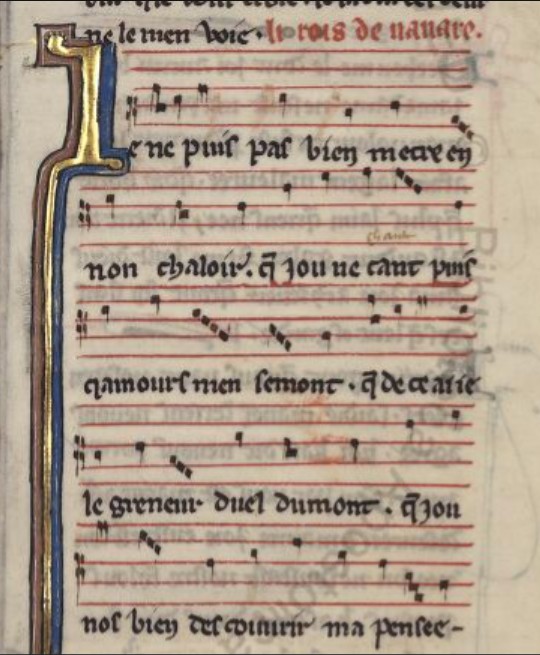 ne le men voie · li rois de nauare.
Ie ne puis pas bien metre en
non chaloir. q̃ iou ne cant puis
chant
qamours men semont · q̃ de ce ai ie
le greneur duel dumont · q̃ iou
nos bien descouurir ma pensee -